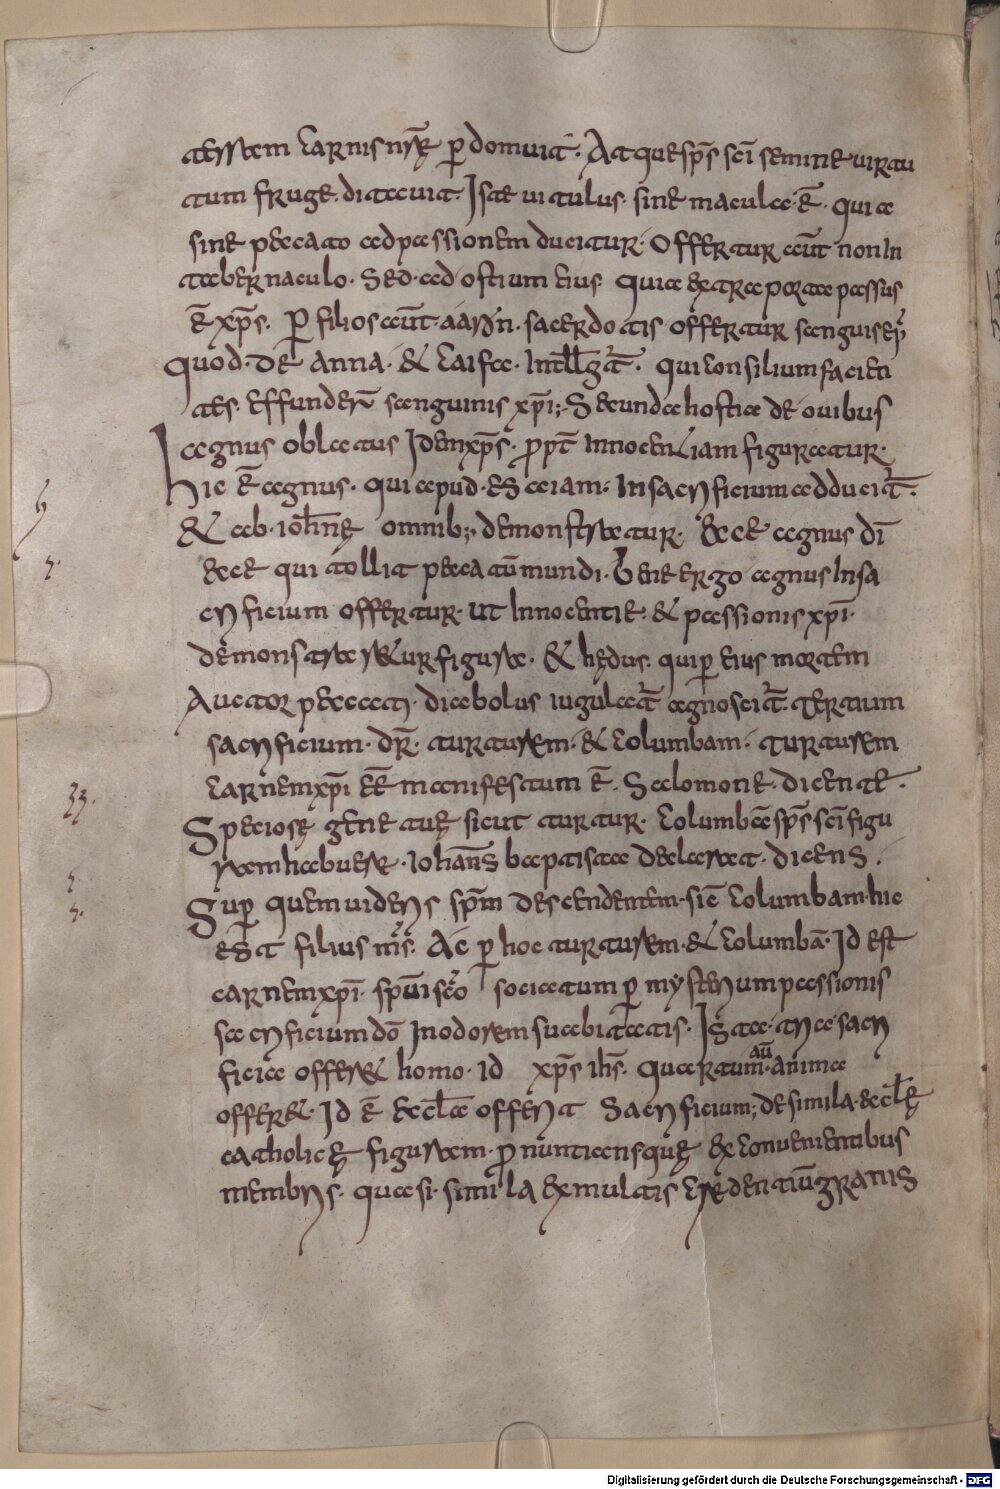 terram carnis nrę̄ p̄domuit. Atque sp̄s sc̄i semine uirtu
tum fruge. ditauit. Iste uitulus. sine macula. ē. quia
sine peccato ad passionem ducitur. Offertur aūt non In
tabernaculo. Sed. ad ostium eius quia extra porta passus
ē xp̄s. P̄ filios aūt. aaron. sacerdotis offertur sanguis ei
quod. de anna. & caifa. Intell̄ḡt. qui consilium facien
tes. effunder̄ sanguinis xp̄i;. Secunda hostia de ouibus
agnus oblatus Idem xp̄s. p̄p̄t Innocentiam figuratur.
hic ē agnus. qui apud. esaiam. In sacrificium adducit̄.
& ab. ioh̄nę omnib;. demonstratur. Ecce agnus dī
ecce qui tollit peccatū mundi. Bene ergo agnus In sa
crificium offertur. ut Innocentie. & passionis xp̄i.
demonstraretur figura. & hędus. qui p̄ eius mortem
Auctor peccati. diabolus iugulat̄ agnoscit̄. Tertium
sacrificium. dr̄. turturem. & columbam. Turturem
carnem xp̄i ēē manifestum ē. Salomone. dicente.
Speciosę genę tuę sicut turtur. Columbā sp̄s sc̄i figu
ram habuere. Iohanns̄ baptista declarat. dicens.
Sup̄ quem uideris sp̄m descendentem. sic̄ columbam. hic
est filius m̄s. Ac p̄ hoc turturem. & columbā. Id est
carnem xp̄i. sp̄ui sc̄o sociatum p̄ mysterium passionis
sacrificium dō In odorem suabitatis. Ista. tria. sacri
ficia offeret homo. id xp̄s ih̄s. Quartum. aū. anima
offeret. Id ē eccl̄a offerit Sacrificium; de simila. eccl̄ę
catholicę figuram. p̄nuntiansquę ex conuenientibus
membris. quasi. simila ex multis credentiū granis
Digitalisierung gefördert durch die Deutsche Forschungsgemeinschaft - DFG